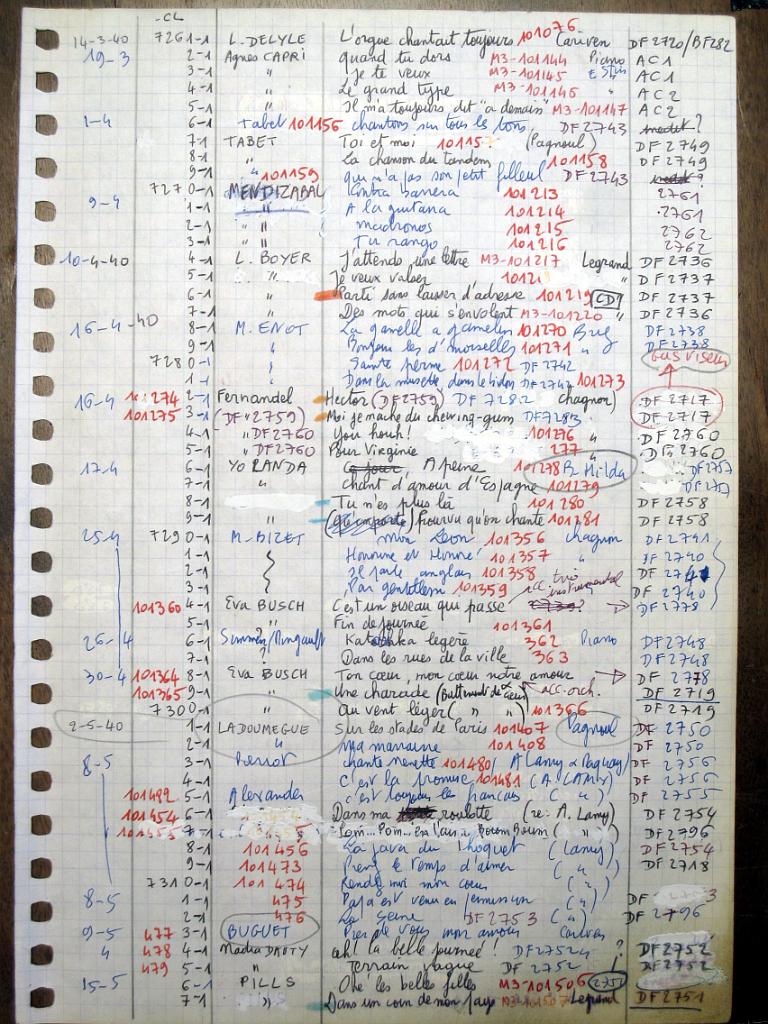 -CL
14-3-40 7261-1 L. DELYLE L'orgue chantait toujours 101076 Cariven DF 2720/BF282
19-3 2-1 Agnes CAPRI quand tu dors M3-101144 Piano AC1
3-1 " je te veux M3-101145 AC1
4-1 " Le grand type M3-101146 AC2
5-1 " Il m'a toujours dit "a demain" M3-101147 AC2
1-4 6-1 Tabet 101156 chantons sur tous les tons DF 2743 inedit?
7-1 TABET Toi et moi 10115 (Pagnoul) DF 2749
8-1 " La chanson du tandem 101158 DF 2749
9-1 " 101159 qui n'a pas son petit filleul DF 2743
9-4 7270-1 MENDIZABAL barrera 101213 2761
1-1 " A la guitana 101214 2761
2-1 " " madronos 101215 2762
3-1 " " Tu rango 101216 2762
10-4-40 4-1 L. BOYER J'attends une lettre M3-101217 Legrand DF 2736
5-1 " Je veux valser 10121 " DF 2737
6-1 " Parti sans laisser d'adresse 101219 CD? DF 2737
7-1 " Des mots qui s'envolent M3-101220 " DF 2736
16-4-40 8-1 M. ENOT La gamelle a gamelin 101270 DF 2738
9-1 " Bonjour les d'moiselles 101271 " DF 2738
7280-1 " Sainte 101272 DF 2742 Gus Viseur
1-1 " Dans la musette, dans le bidon DF 2742 101273
16-4 101274 2-1 Fernandel Hector (DF 2759) DF 7282 chagnon) DF 2717
101275 3-1 (DF 2759) Moi je mache du chewing-gum DF 7283 DF 2717
4-1 " DF 2760 You houh! 101276 " DF 2760
5-1 " DF 2760 Pour Virginie 277 " DF 2760
17-4 6-1 YOLANDA A peine 101278 Hilda DF 2757
7-1 " chant d'amour d'Espagne 101279
8-1 Tu n'es plus là 101280 DF 2758
9-1 (qu'importe) Pourvu qu'on chante 101281 DF 2758
25-4 7290-1 M. BIZET mon Leon 101356 chagnon DF 2741
1-1 Honorine et Honoré 101357 " DF 2740
2-1 Il parle anglais 101358 DF 2741
3-1 Par gentillesse 101359 acc trio instrumental DF 2740
101360 4-1 Eva BUSCH C'est un oiseau qui passe DF 2778
5-1 " Fin de journée 101361
26-4 6-1 Katoshka legere 362 Piano DF 2748
7-1 ? Dans les rues de la ville 363 DF 2748
30-4 101364 8-1 Eva BUSCH Ton cœur, mon cœur notre amour DF 2778
101365 9-1 " Une charade (Battement de cœur) acc. orch. DF 2719
7300-1 " Au vent léger ( " " ) 101366 DF 2719
2-5-40 1-1 LADOUMEGUE Sur les stades de Paris 101407 Pagnoul DF 2750
2-1 " Ma marraine 101408 DF 2750
8-5 3-1 Perrot chante 101480 (A Lamy DF 2756
4-1 C'est la promise 101481 (A. LAMY) DF 2756
101492 5-1 Alexander c'est toujours les francais ( " ) DF 2755
101454 6-1 " Dans ma roulotte (re: A. Lamy) DF 2754
101455 7-1 Pom... Pom... Boum ( " ) DF 2796
8-1 101456 La java du (Lamy) DF 2754
9-1 101473 Prens le temps d'aimer ( " ) DF 2718
7310-1 101474 Rends moi mon cœur ( " )
8-5 1-1 475 Papa est venu en permission ( " ) DF 3
2-1 476 La Seine DF 2753 ( " ) DF 2796
9-5 477 3-1 BUGUET Pres de vous mon amour Cariven
" 478 4-1 Nadia DAUTY Ah! La belle journée! DF 2752 ? DF 2752
479 5-1 " Terrain vague DF 2752 DF 2752
15-5 6-1 PILLS Ohé les belles filles M3-101506 2751
7-1 " Dans un coin de mon pays M3-101507 Legrand DF 2751